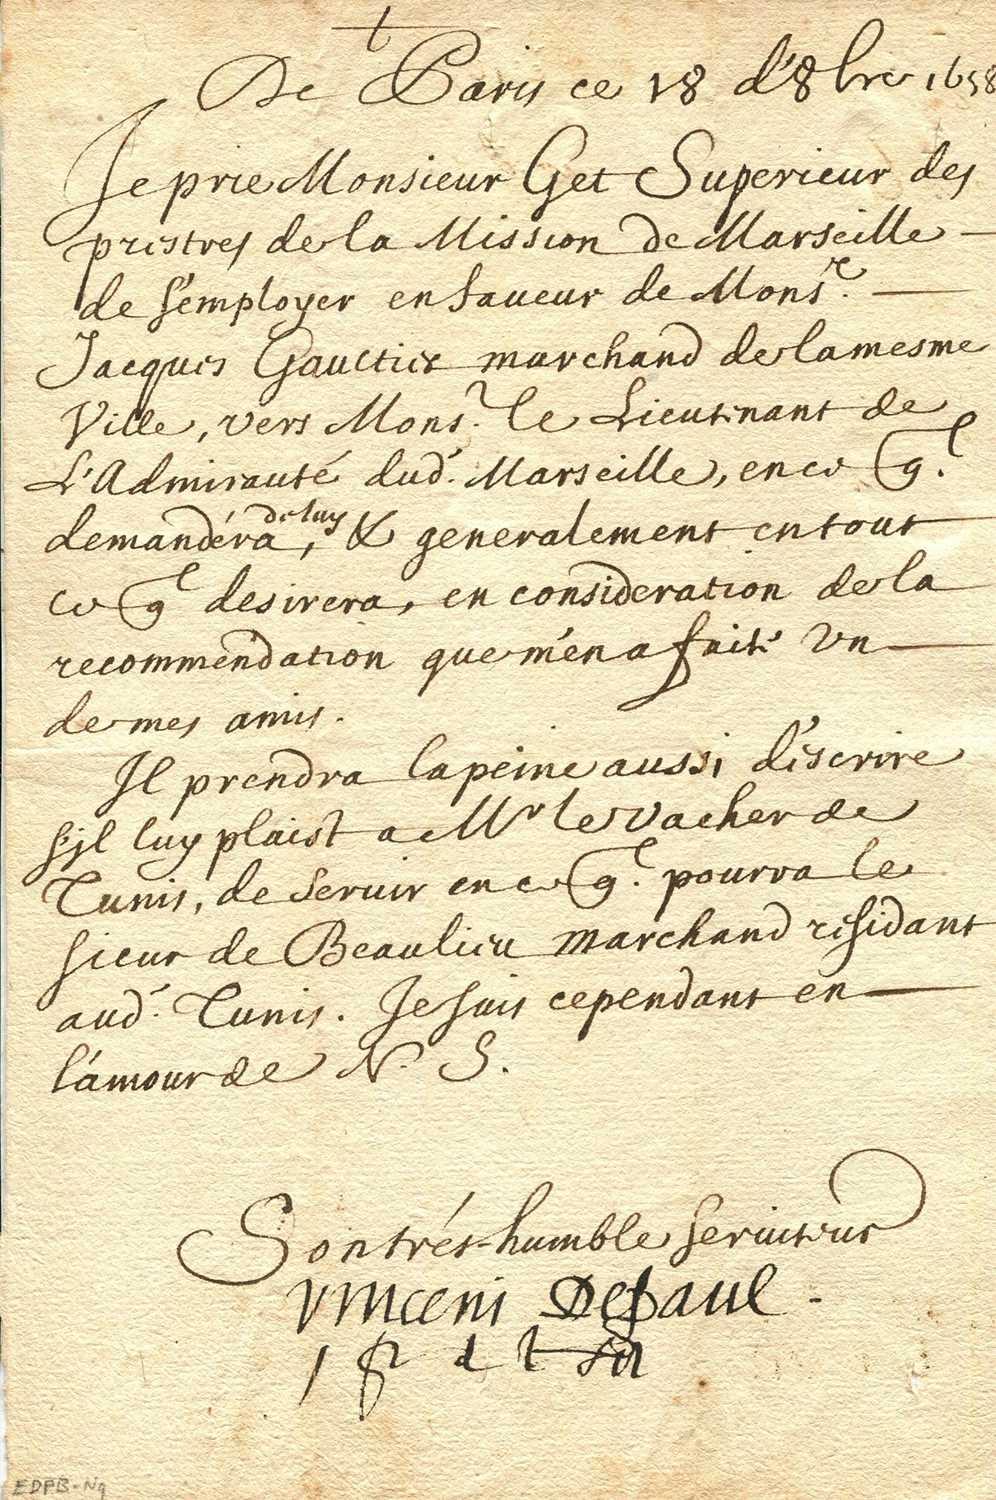 t
De Paris ce 18 d'8bre 1658
Je prie Monsieur Get Superieur des
prestres de la Mission de Marseille
de s'employer en faveur de Monsr.
Jacques Gaultier marchand de la mesme
Ville, vers Monsr. le Lieutenant de
L'Admirauté dud. Marseille, en ce ql.
demandera de luy, & generalement en tout
ce ql desirera, en consideration de la
recommendation que m'en a fait Un
de mes amis.
Il prendra la peine aussi d'escrire
s'il luy plaist a Mr le Vacher de
Tunis, de servir en ce ql. pourra le
sieur de Beaulieu marchand residant
aud. Tunis. Je suis cependant en
l'amour de N. S.
Son trés-humble serviteur
Vincent Depaul
i p d l m
EDPB-Nq